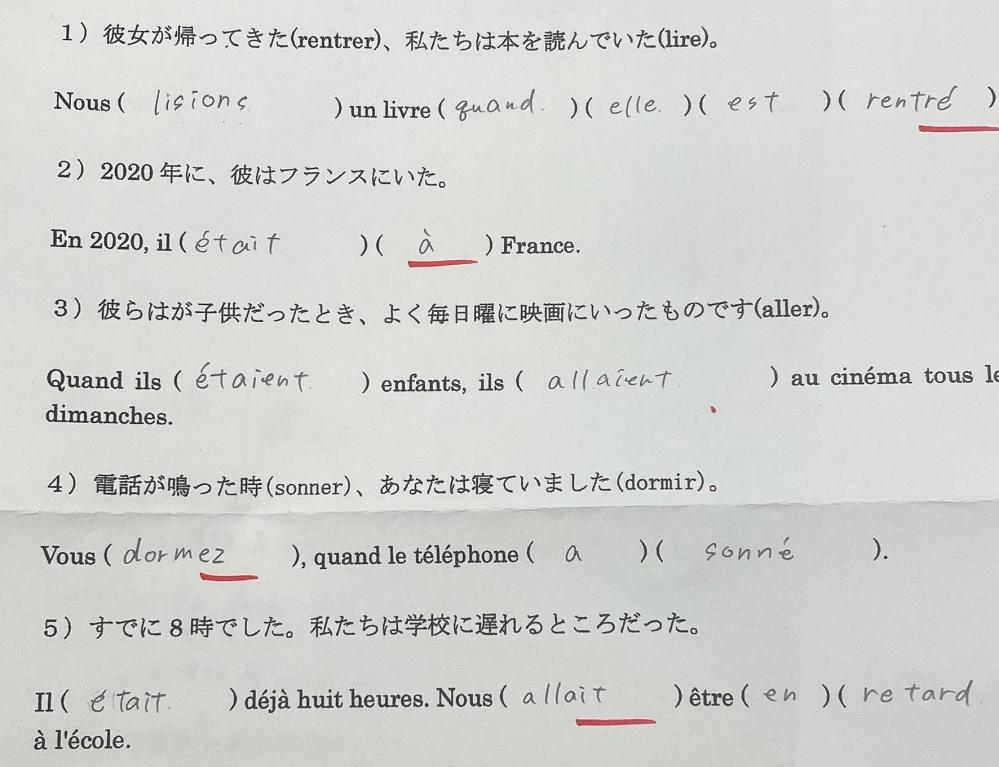 1）彼女が帰ってきた(rentrer)、私たちは本を読んでいた(lire)。
Nous ( lisions ) un livre ( quand ) ( elle ) ( est ) ( rentré )
2）2020 年に、彼はフランスにいた。
En 2020, il ( était ) ( à ) France.
3）彼らはが子供だったとき、よく毎日曜に映画にいったものです(aller)。
Quand ils ( étaient ) enfants, ils ( allaient ) au cinéma tous le
dimanches.
4）電話が鳴った時(sonner)、あなたは寝ていました(dormir)。
Vous ( dormez ), quand le téléphone ( a ) ( sonné ).
5）すでに 8 時でした。私たちは学校に遅れるところだった。
Il ( était ) déjà huit heures. Nous ( allait ) être ( en ) ( retard
à l'école.